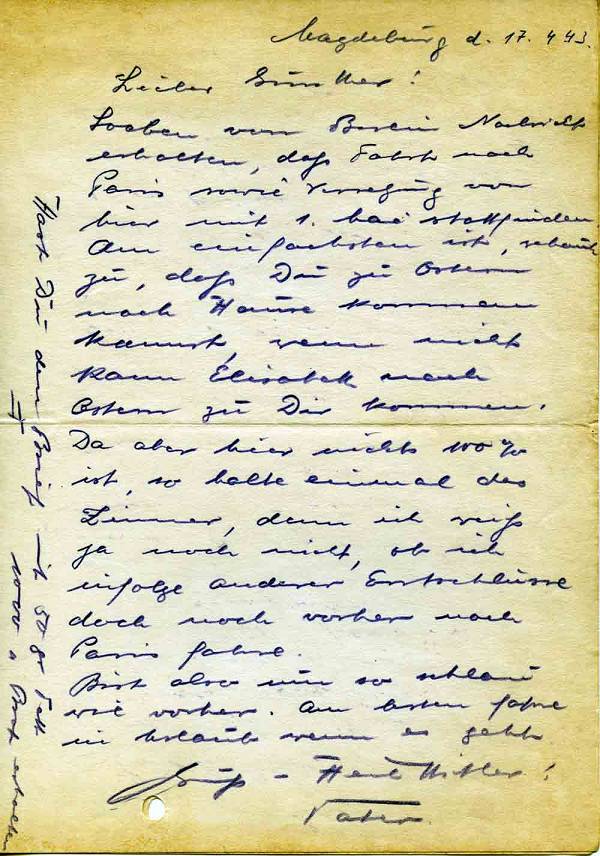 Magdeburg d. 17.4.43.
Lieber Günther!
Soeben von Berlin Nachricht
erhalten, daß Fahrt nach
Paris sowie Verlegung von
hier mit 1. Mai stattfinden.
Am einfachsten ist, schau
zu, daß Du zu Ostern
nach Hause kommen
kannst, wenn nicht
kann Elisabeth nach
Ostern zu Dir kommen.
Da aber hier nichts 100%
ist, so halte einmal das
Zimmer, denn ich weiß
ja noch nicht, ob ich
infolge anderer Entschlüsse
doch noch vorher nach
Paris fahre.
Bist also nun so schlau
wie vorher. Am besten fahre
in Urlaub wenn es geht.
Gruß - Heil Hitler!
Vater.
Hast Du den Brief mit 50 gr Fett
1000 " Brot erhalten